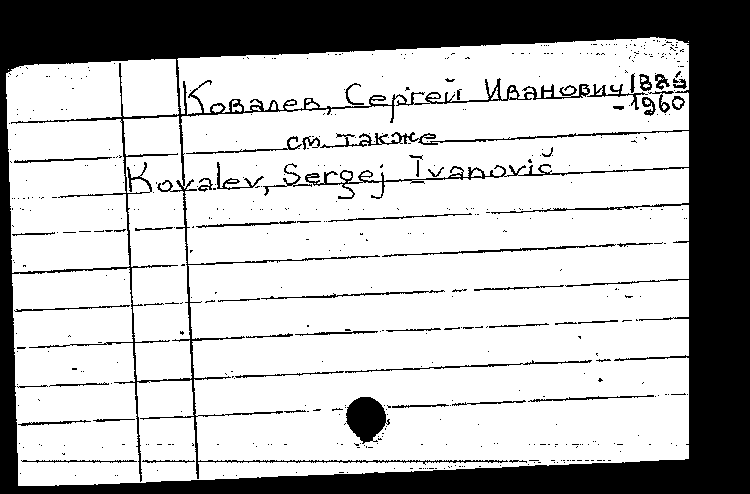 Ковалев, Сергей Иванович 1886
-1960
см. также
Kovalev, Sergej Ivanovič